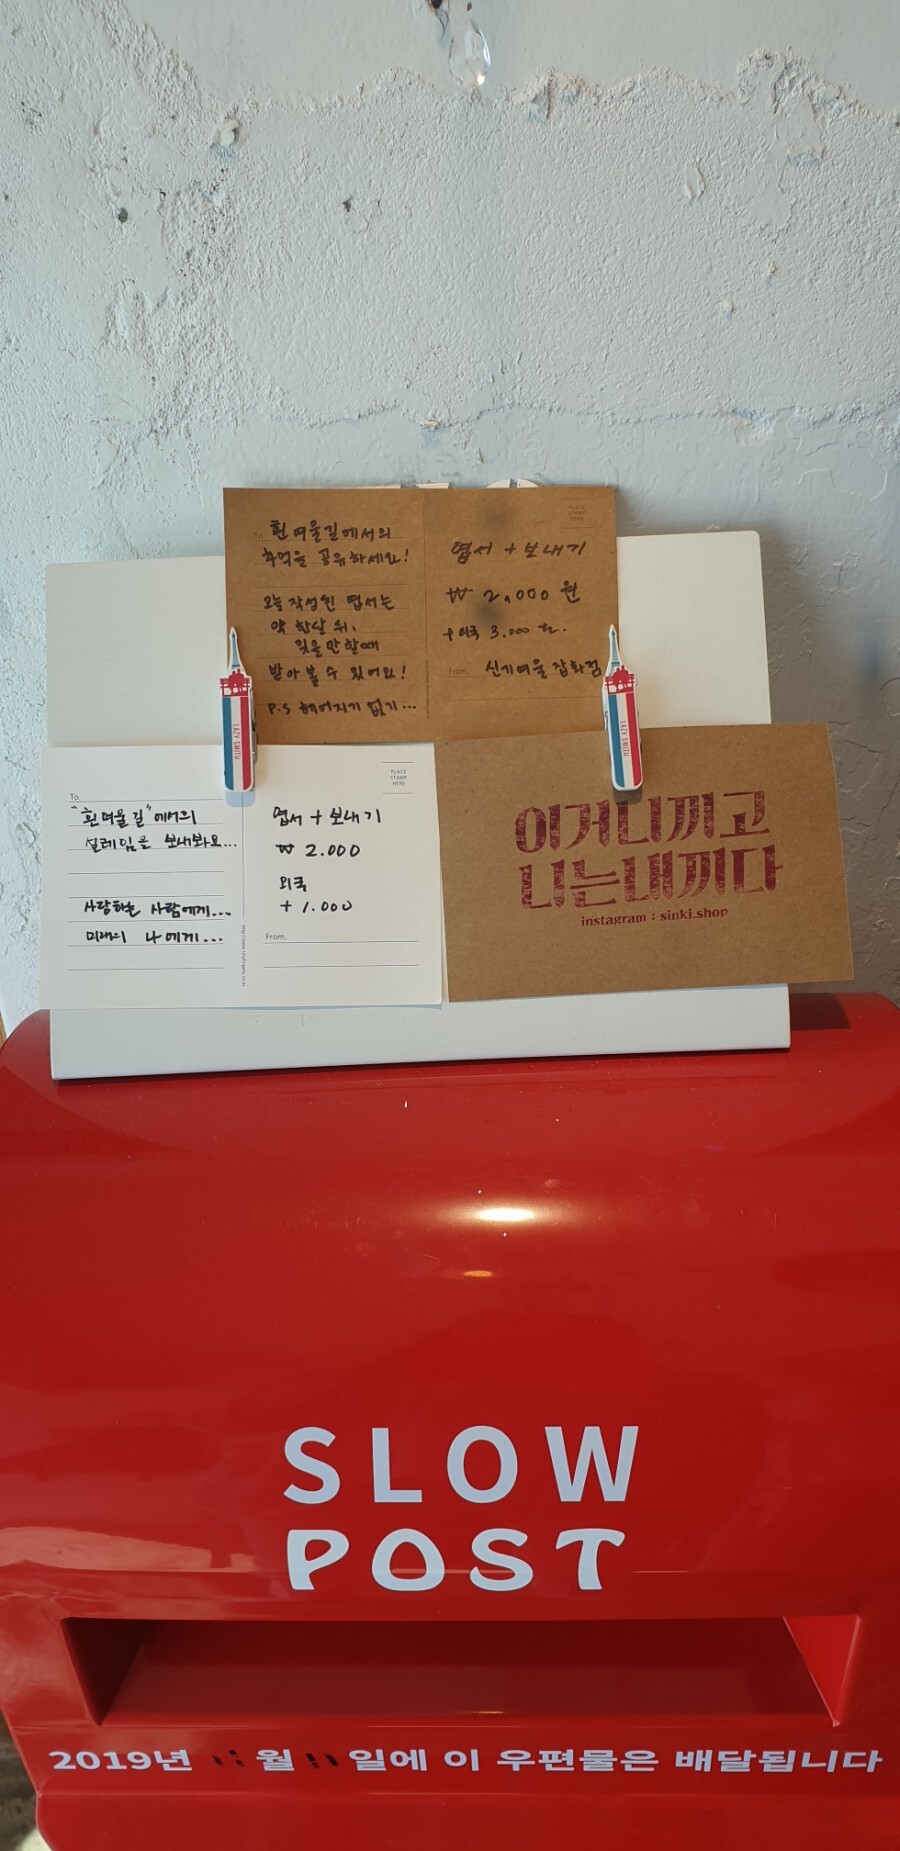 PLACE
STAMP
HERE
To.
흰여울길에서의
추억을 공유하세요!
오늘 작성된 엽서는
약 한달 뒤,
잊을만할때
받아볼 수 있어요!
P.S 헤어지기 없기...
엽서 + 보내기
₩ 2,000 원
+ 외국 3.000 원.
From. 신기여울 잡화점
LAZY SMITH
LAZY SMITH
PLACE
STAMP
HERE
To.
"흰여울길"에서의
설레임을 보내봐요...
사랑하는 사람에게...
미래의 나에게...
엽서 + 보내기
₩ 2.000
외국
+ 1.000
From.
이거니끼고
니는내끼다
instagram : sinki.shop
SLOW
POST
2019년 11월 11일에 이 우편물은 배달됩니다